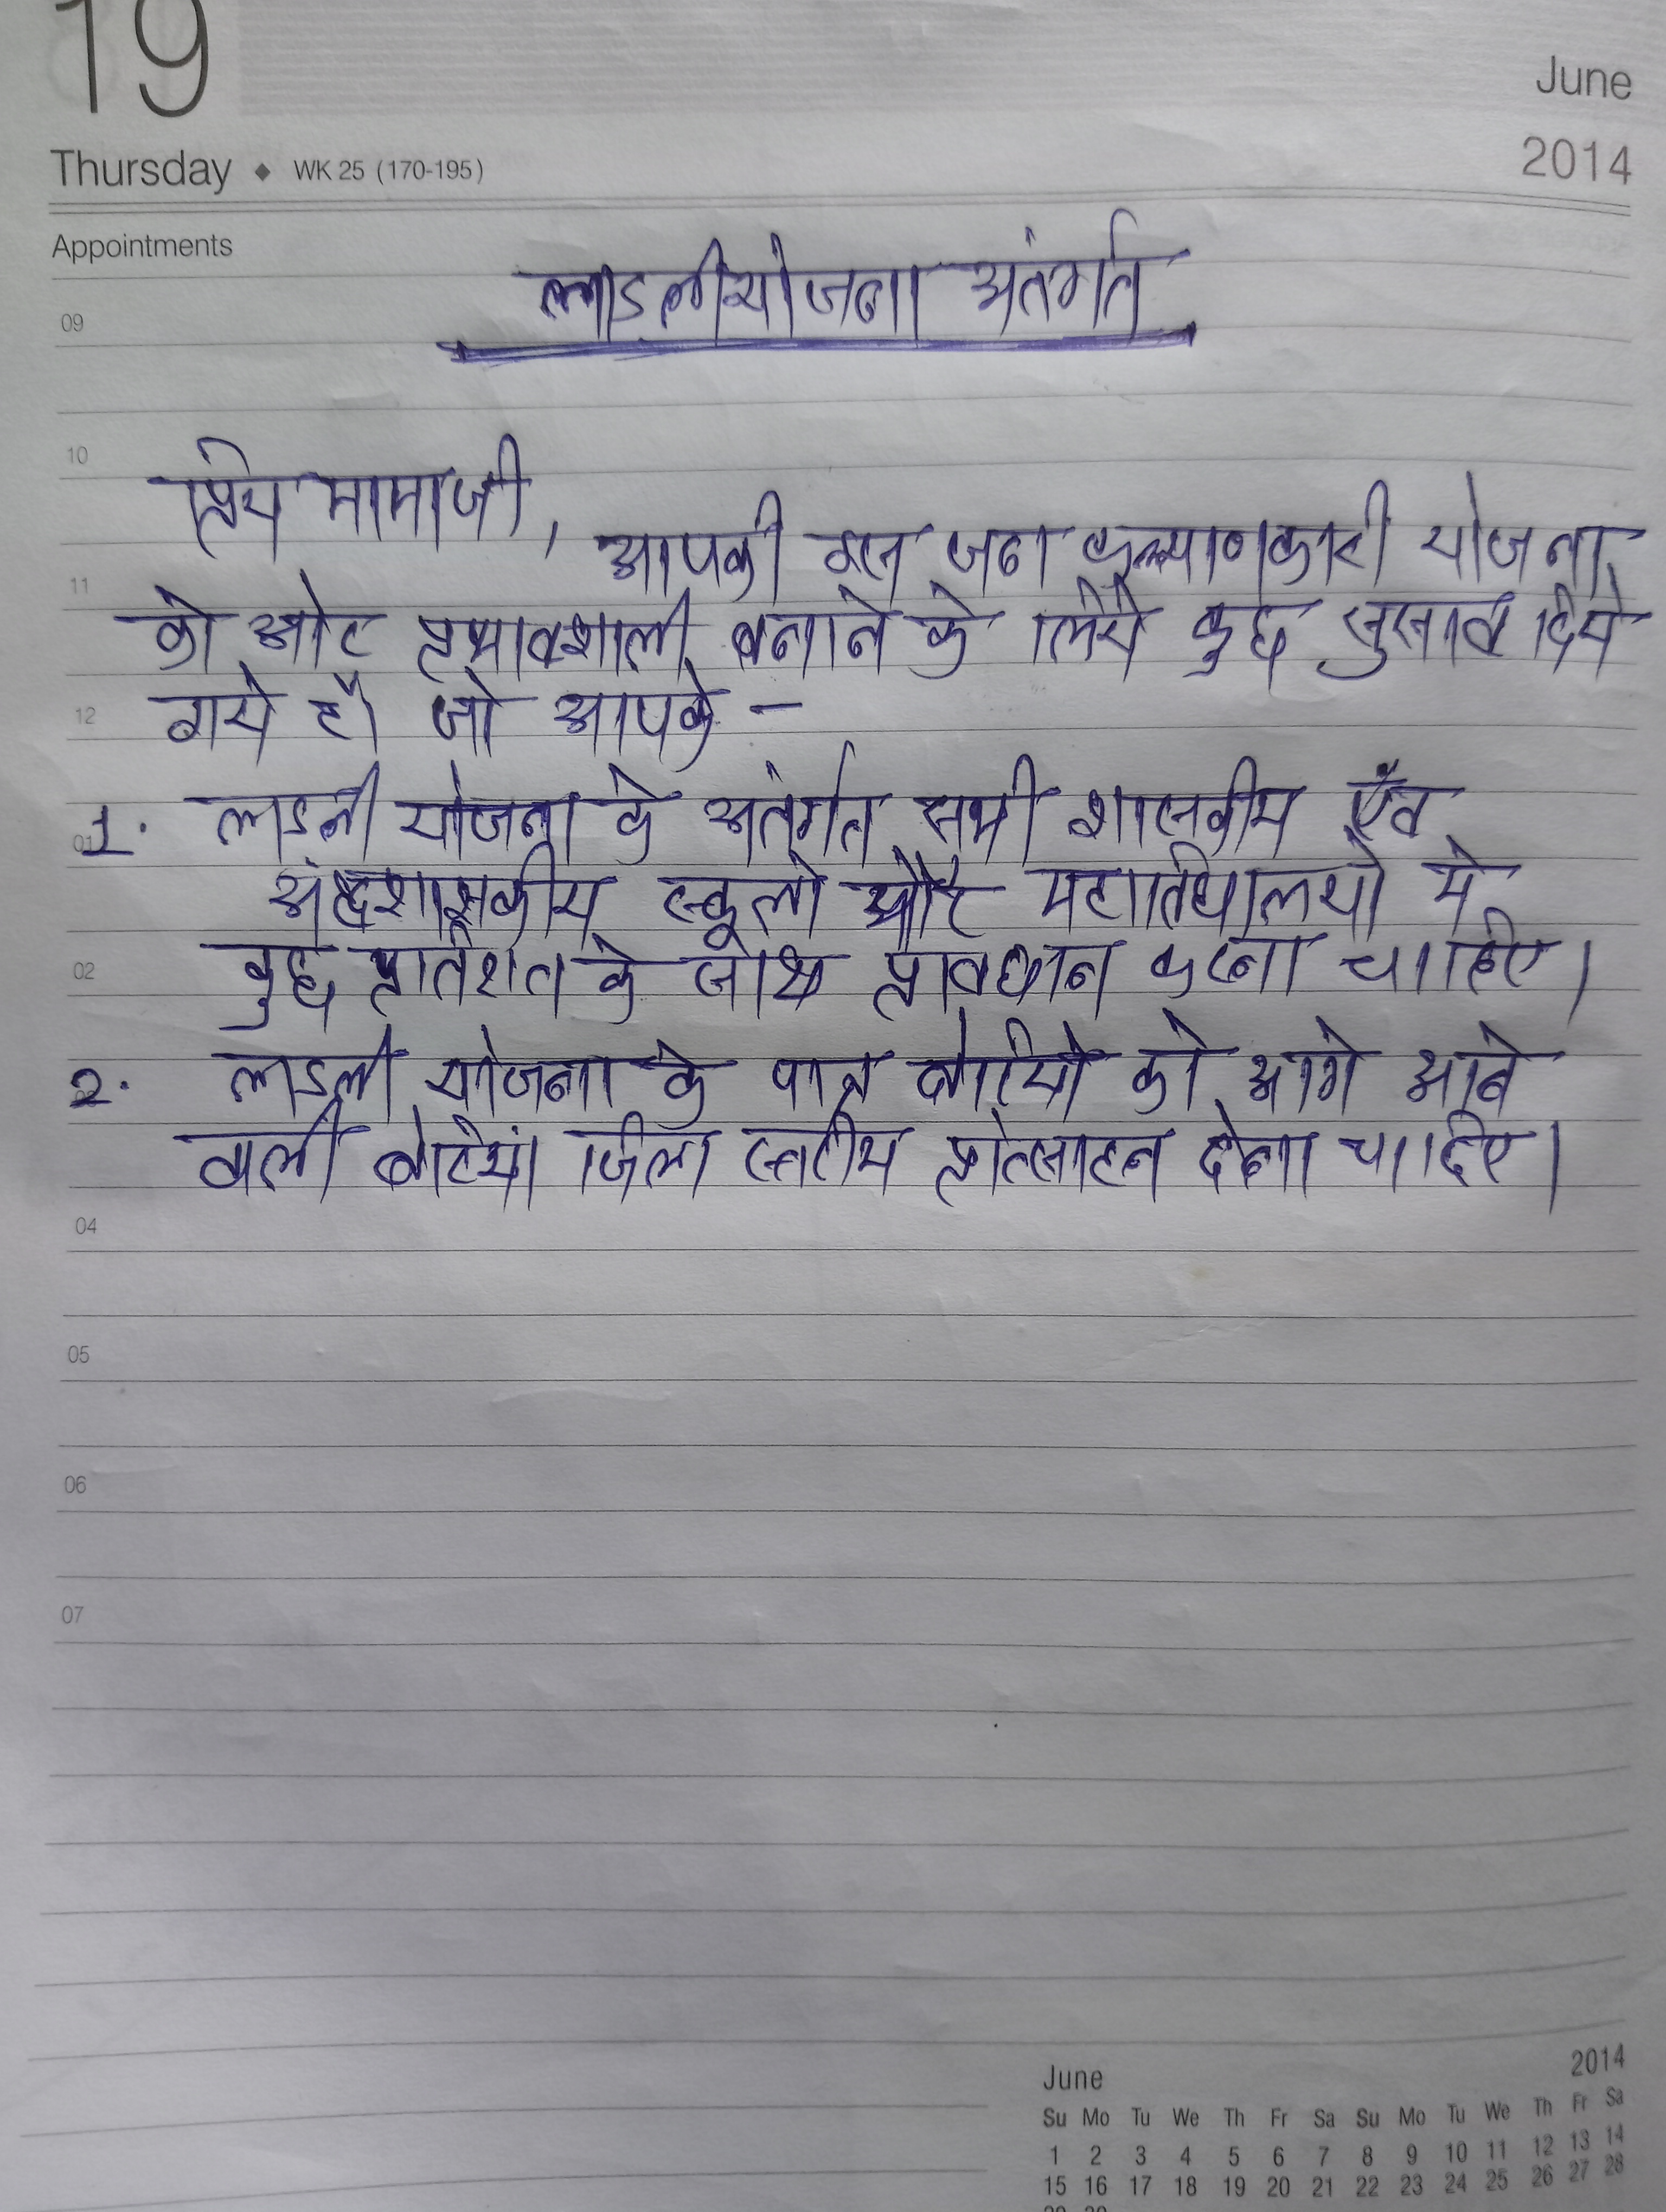 19
June
2014
Thursday ◆ WK 25 (170-195)
Appointments
लाडलीयोजना अंतर्गत
09
10
प्रिय मामाजी,
आपकी इस जन कल्याणकारी योजना
11
को ओर प्रभावशाली बनाने के लिये कुछ सुझाव दिये
12
गये है। जो आपके -
01
1. लाडली योजना के अंतर्गत सभी शासकीय एंव
अर्द्धशासकीय स्कूलो और महाविद्यालयो मे
02
कुछ प्रतिशत के साथ प्रावधान करना चाहिए।
2. लाडली योजना के पात्र बेटियों को आगे आने
वाली बेटियां जिला स्तरीय प्रोत्साहन देना चाहिए।
04
05
06
07
June 2014
Su Mo Tu We Th Fr Sa Su Mo Tu We Th Fr Sa
1 2 3 4 5 6 7 8 9 10 11 12 13 14
15 16 17 18 19 20 21 22 23 24 25 26 27 28
29 30